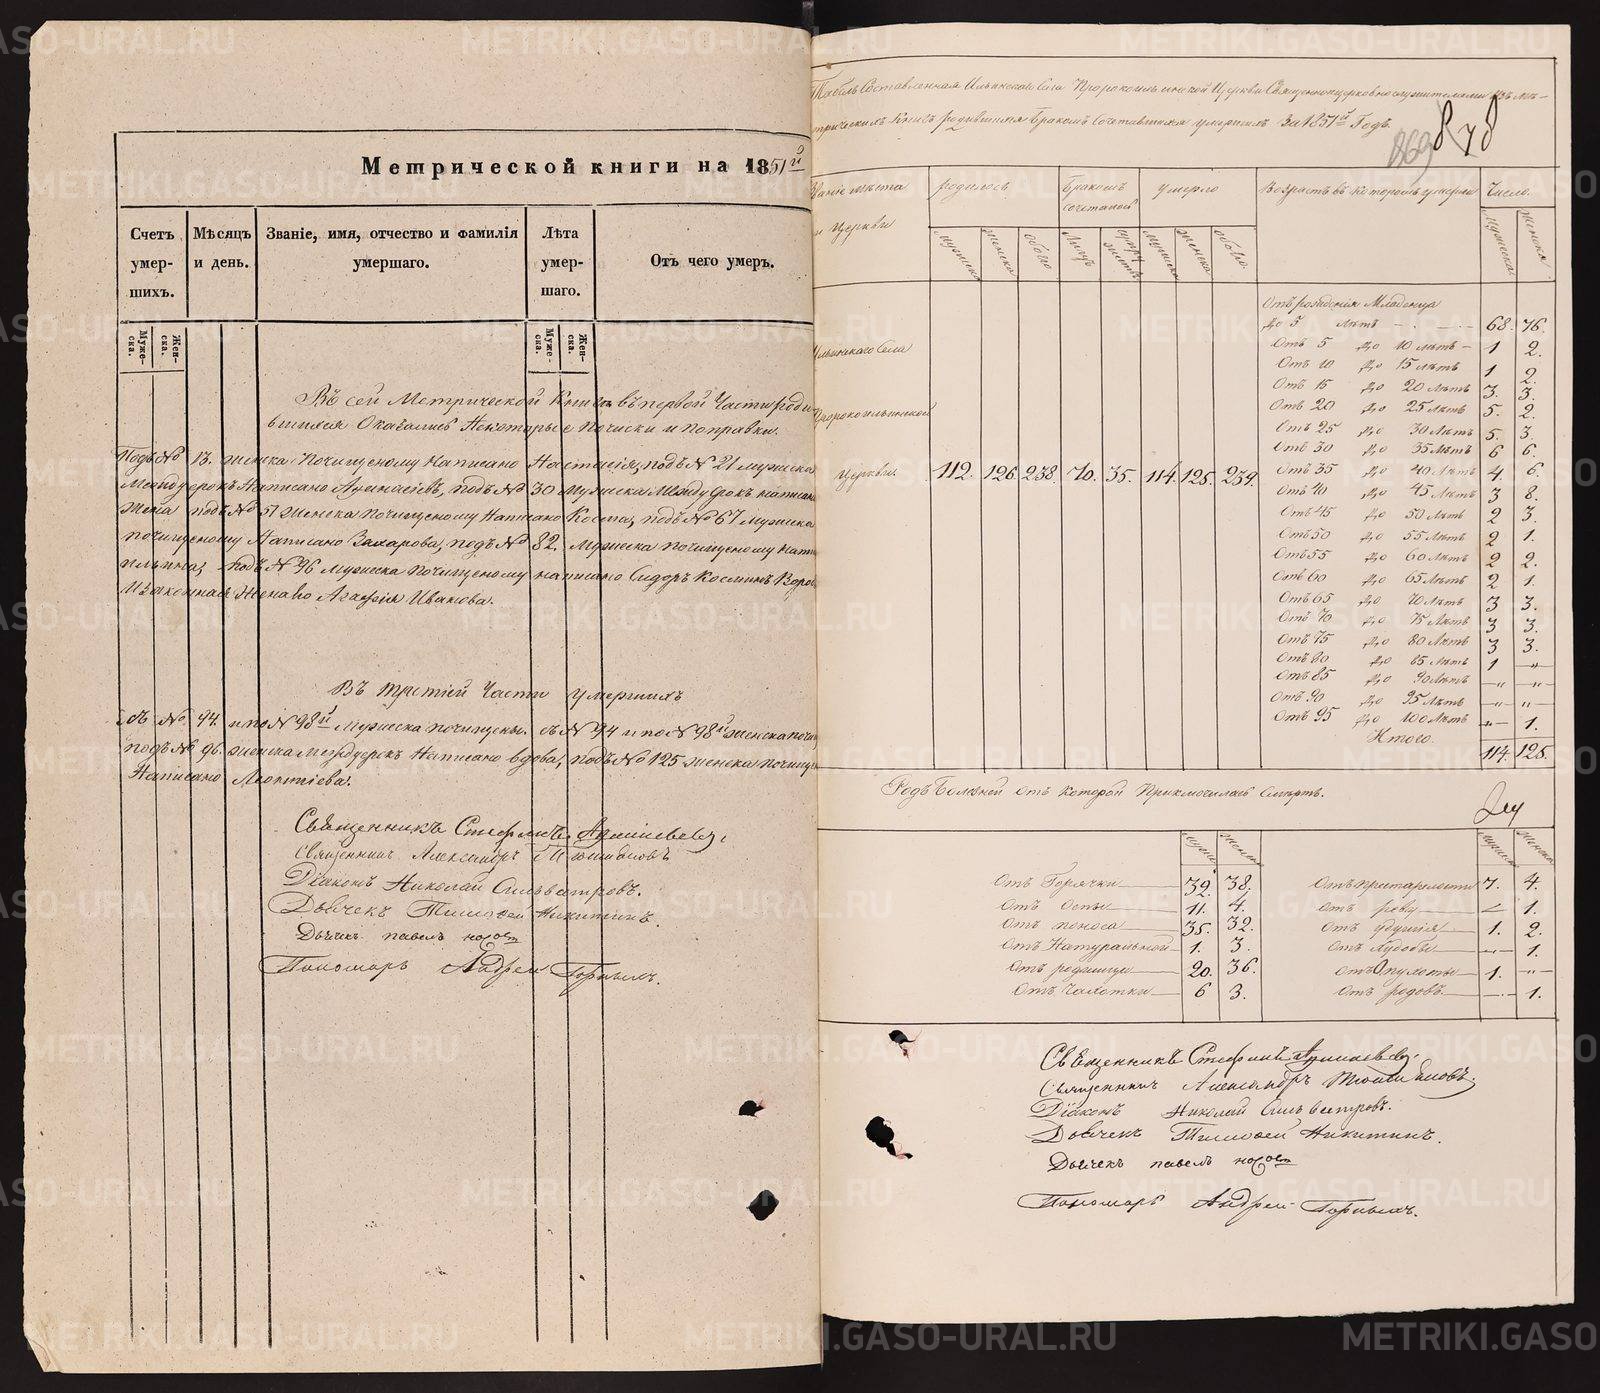 Метрической книги на 1851й
Счетъ умер- шихъ.
Мѣсяцъ и день.
Званіе, имя, отчество и фамилія умершаго.
Лѣта умер- шаго.
Отъ чего умеръ.
Муже- ска.
Жен- ска.
Муже- ска.
Жен- ска.
Въ сей Метрической Книгѣ въ первой Части роди
вшихся Оказались Некоторые почиски и поправки.
Подъ № 13. женска Почищеному Написано Настасія, подъ № 21 мужска
Между строкъ Написано подъ № 30 Мужска Между строкъ написано
подъ № 51 женска почищеному Написано Косма, подъ № 67 мужска
почищеному Написано Захарова, подъ № 82. Мужска почищеному
ильина, подъ № 96 Мужска почищеному написано Сидоръ Косминъ
законная Жена его Агафія Иванова.
Въ третіей Части умершихъ
съ № 94. и по № 98й Мужска почищены. съ № 94 и по № 98й женска
подъ № 96. женска между строкъ Написано вдова, подъ № 125 женска
Написано Леонтіева.
Священникъ Стефанъ
Священникъ Александръ
Діаконъ Николай Сильвестровъ.
Дьячекъ Тимофей Никитинъ.
Дьячекъ павелъ
Пономарь Андрей Горныхъ.
Табель Составленная Ильинскаго Села Пророкоильинской Церкви Священноцерковнослужителями изъ ме-
трическихъ Книгъ родившимся Бракомъ сочетавшимся умершимъ За 1851й Годъ.
869 878
Званіе мѣста и Церкви
родилось
Бракомъ сочетаной
умерло
Возрастъ въ которомъ умерли
Число.
мужска женска обоего Лицъ супружествъ мужска женска обоего Мужска Женска
Ильинскаго Села
Пророкоильинской
Церкви. 112. 126. 238. 70. 35. 114. 125. 239.
Отъ рожденія Младенца
до 5 лѣтъ 68. 76.
Отъ 5 до 10 лѣтъ 1 2.
Отъ 10 до 15 лѣтъ 1 2.
Отъ 15 до 20 лѣтъ 3. 3.
Отъ 20 до 25 лѣтъ 5. 2.
Отъ 25 до 30 лѣтъ 5. 3.
Отъ 30 до 35 лѣтъ 6 6.
Отъ 35 до 40 лѣтъ 4. 6.
Отъ 40 до 45 лѣтъ 3 8.
Отъ 45 до 50 лѣтъ 2 3.
Отъ 50 до 55 лѣтъ 2 1.
Отъ 55 до 60 лѣтъ 2 2.
Отъ 60 до 65 лѣтъ 2 1.
Отъ 65 до 70 лѣтъ 3 3.
Отъ 70 до 75 лѣтъ 3 3.
Отъ 75 до 80 лѣтъ 3 3.
Отъ 80 до 85 лѣтъ 1 -"-
Отъ 85 до 90 лѣтъ -"- -"-
Отъ 90 до 95 лѣтъ -"- -"-
Отъ 95 до 100 лѣтъ -"- 1.
Итого 114. 125.
Родъ Болезней отъ которой Приключилась Смерть.
мужска женска мужска женска
Отъ Горячки 39. 38. Отъ престарелости 7. 4.
Отъ Оспы 11. 4. отъ реву - 1.
Отъ поноса 35. 32. отъ удушія 1. 2.
Отъ Натуральной 1. 3. отъ худобы - 1.
Отъ родимца 20. 36. отъ Опухоли 1. -"-
Отъ Чахотки 6 3. отъ родовъ - 1.
Священникъ Стефанъ
Священникъ Александръ
Діаконъ Николай Сильвестровъ.
Дьячекъ Тимофей Никитинъ.
Дьячекъ павелъ
Пономарь Андрей Горныхъ.
METRIKI.GASO-URAL.RU